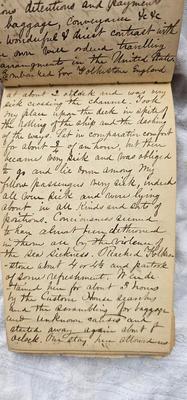 ous detentions and payment
baggage, conveyance &c &c
wonderful & direct contrast with
our own well ordered travelling
arrangements in the United States
Embarked for Folkstone England
at about 2 o'clock and was very
sick crossing the channel. Took
my place upon the deck in spite of
the rolling of the ship and the dashing
of the waves. Sat in comparative comfort
for about ¾ of an hour, but then
became very sick and was obliged
to go and lie down among my
fellow passengers very sick, indeed
all were sick and were lying
about in all kinds and sort of
positions. Consciousness seemed
to have almost been dethroned
in them all by the violence of
the sea sickness. Reached Folk
stone about 4 or 4½ and partook
of some refreshment. Were de
tained here for about 3 hours
by the Custom House searching
and the scrambling for baggage
and unknown causes and
started away again about 8
o'clock. Our stay here allowed us